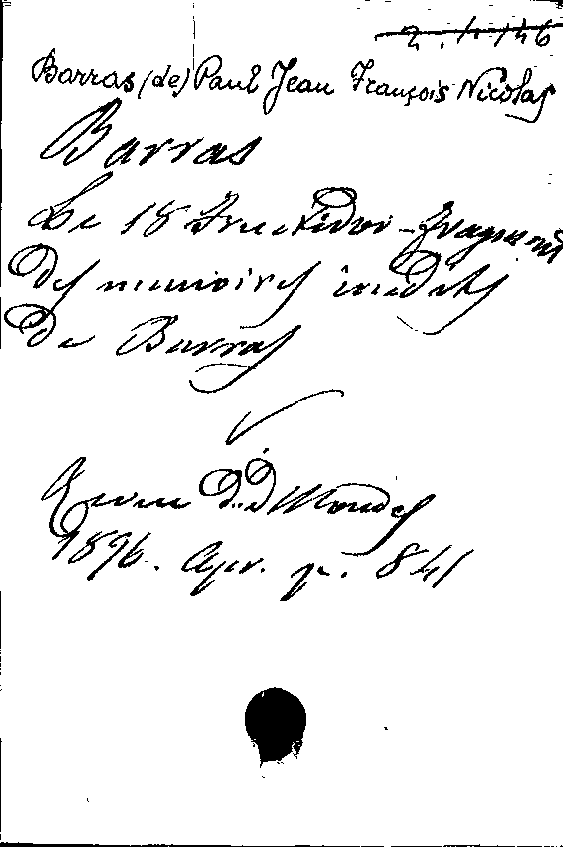 Barras (de) Paul Jean François Nicolas
Barras
Le 18 Fructidor - Fragment
des memoires inedits
de Barras
Revue d. d Mondes
1896. Apr. p. 841